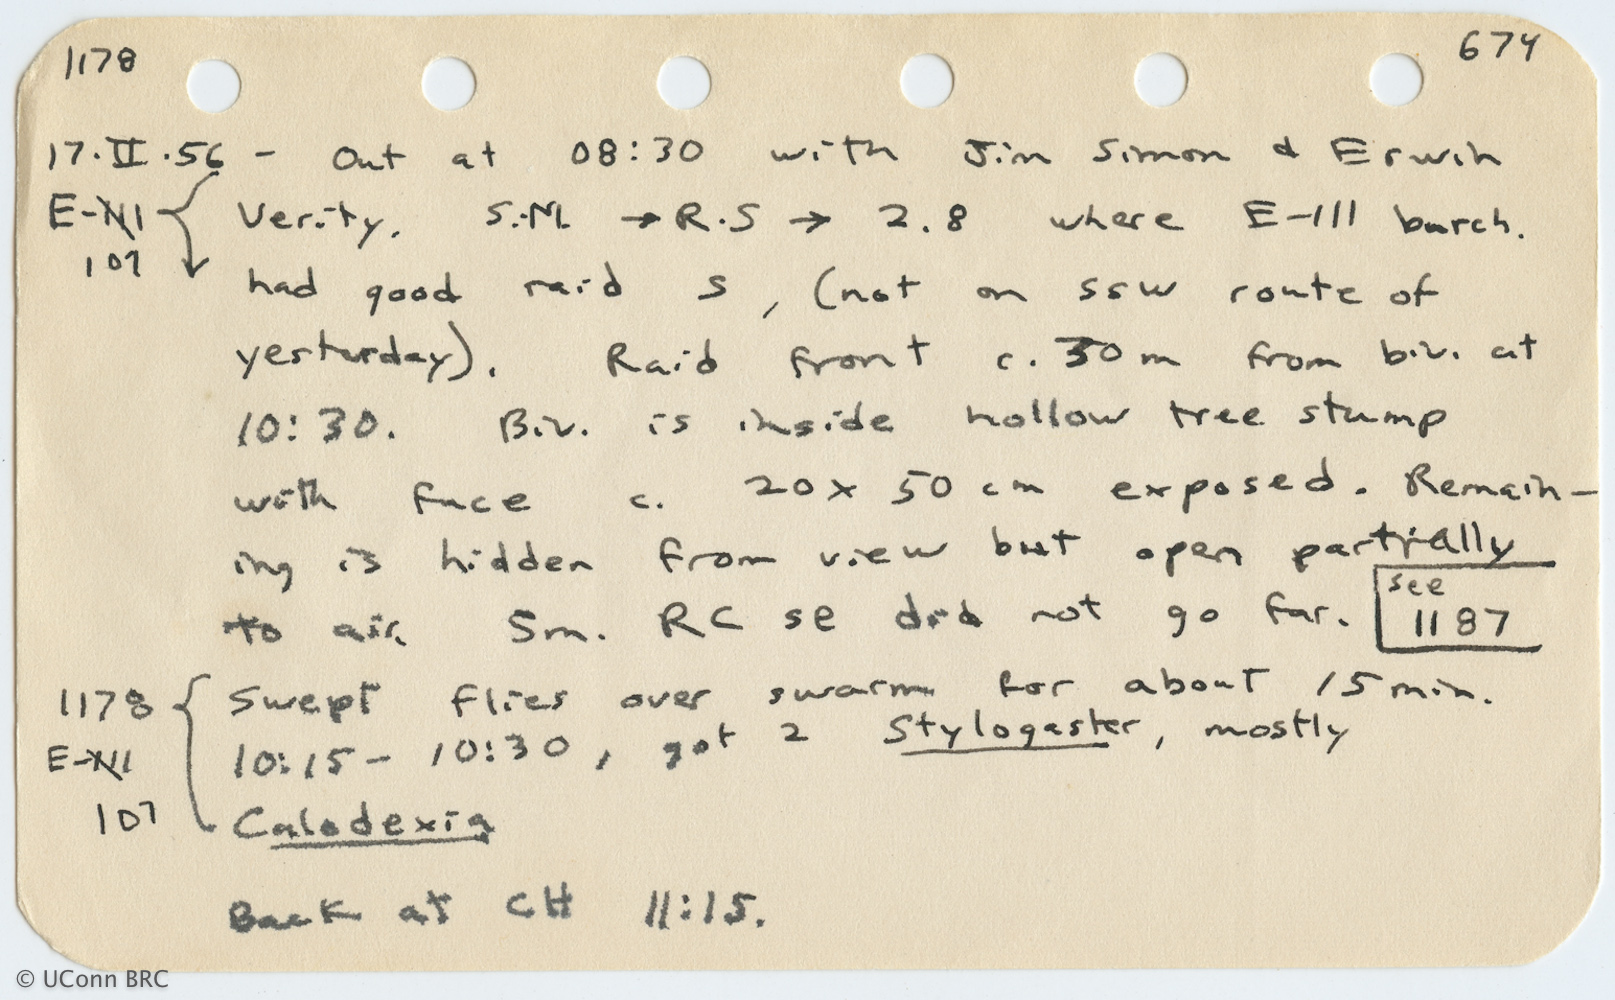 1178 674
17.II.56 - Out at 08:30 with Jim Simon & Erwin
E-XII { Verity. S.M. → R.S → 2.8 where E-III burch.
107 had good raid S, (not on SSW route of
yesterday). Raid front c. 30 m from biv. at
10:30. Biv. is inside hollow tree stump
with face c. 20 x 50 cm exposed. Remain-
ing is hidden from view but open partially
to air. Sm. RC SE did not go far. see 1187
1178 { Swept flies over swarm for about 15 min.
10:15 - 10:30, got 2 Stylogaster, mostly
107 Calodexia
Back at CH 11:15.
© UConn BRC